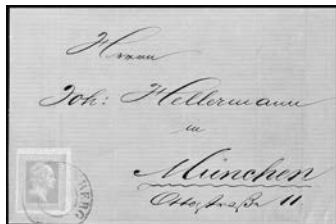 Herrn
Joh: Hellermann
in
München
Ottostraße 11